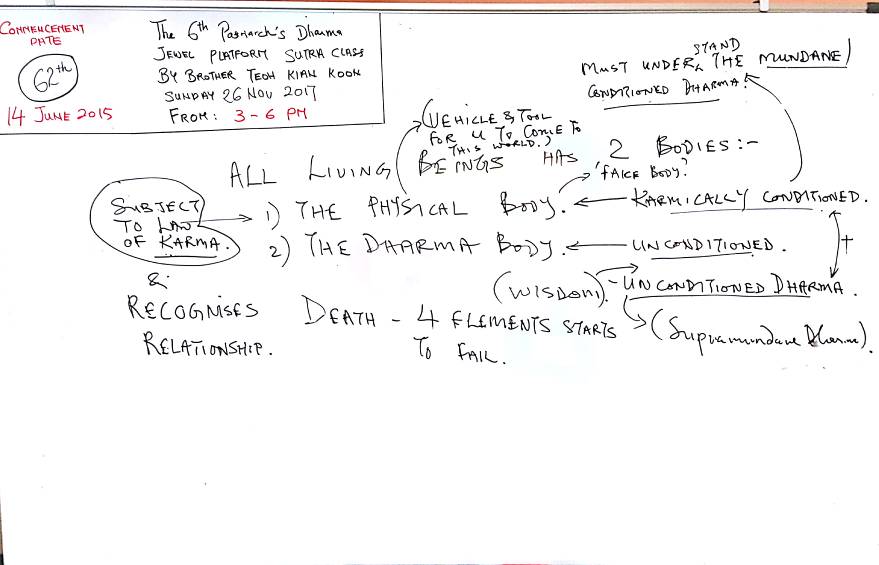 COMMENCEMENT
DATE
62th
14 JUNE 2015
The 6th Patriarch's Dharma
JEWEL PLATFORM SUTRA CLASS
BY BROTHER TEOH KIAN KOON
SUNDAY 26 NOV 2017
FROM: 3-6 PM
STAND
MUST UNDER THE MUNDANE/
CONDITIONED DHARMA.
(VEHICLE & TOOL
FOR U TO COME TO
THIS WORLD.)
ALL LIVING BEINGS HAS 2 BODIES:-
'FAKE BODY?
SUBJECT
TO LAW
OF KARMA.
1) THE PHYSICAL BODY. ← KARMICALLY CONDITIONED.
2) THE DHARMA BODY. ← UNCONDITIONED.
&
RECOGNISES
RELATIONSHIP.
(WISDOM). - UNCONDITIONED DHARMA.
DEATH - 4 ELEMENTS STARTS
TO FAIL.
(Supramundane Dharma).